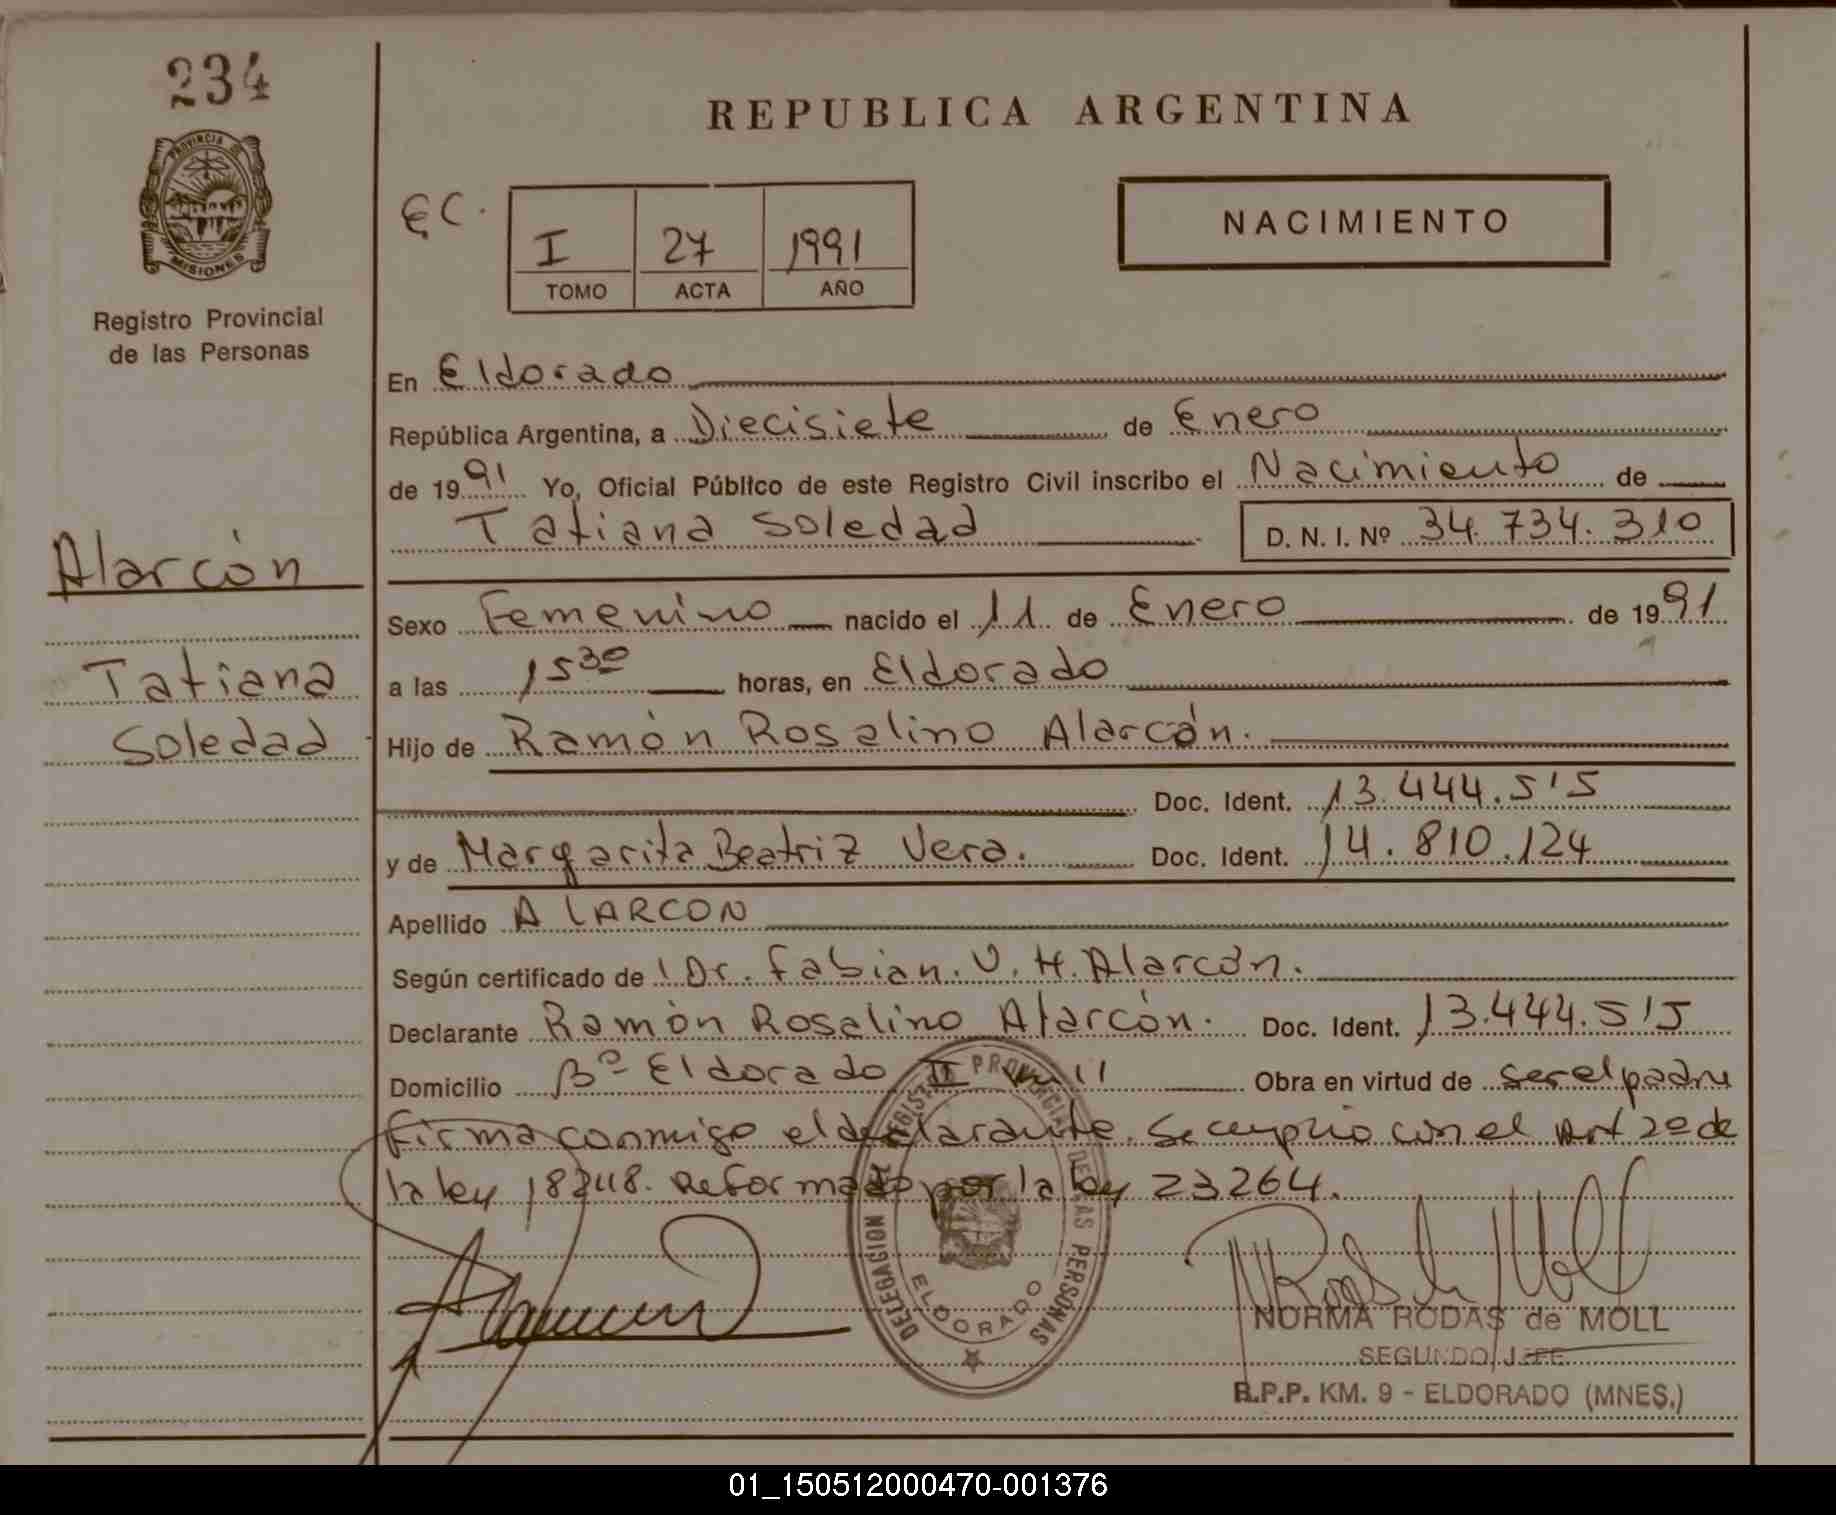 234
PROVINCIA DE
MISIONES
Registro Provincial
de las Personas
Alarcón
Tatiana
Soledad
REPUBLICA ARGENTINA
EC.
I 27 1991
TOMO ACTA AÑO
NACIMIENTO
En Eldorado
República Argentina, a Diecisiete de Enero
de 1991 Yo, Oficial Público de este Registro Civil inscribo el Nacimiento de
Tatiana Soledad D. N. I. Nº 34.734.310
Sexo Femenino nacido el 11 de Enero de 1991
a las 15 30 horas, en Eldorado
Hijo de Ramón Rosalino Alarcón.
Doc. Ident. 13.444.515
y de Margarita Beatriz Vera. Doc. Ident. 14.810.124
Apellido ALARCON
Según certificado de Dr. Fabian. V. H. Alarcón.
Declarante Ramón Rosalino Alarcón. Doc. Ident. 13.444.515
Domicilio Bº Eldorado II 11 Obra en virtud de ser el padre
Firma conmigo el declarante. Se cumplio con el Art 20 de
la ley 18248. Reformado por la ley 23264.
DELEGACION REGISTRO PROVINCIAL DE LAS PERSONAS
ELDORADO
NORMA RODAS de MOLL
SEGUNDO JEFE
R.P.P. KM. 9 - ELDORADO (MNES.)
01_150512000470-001376